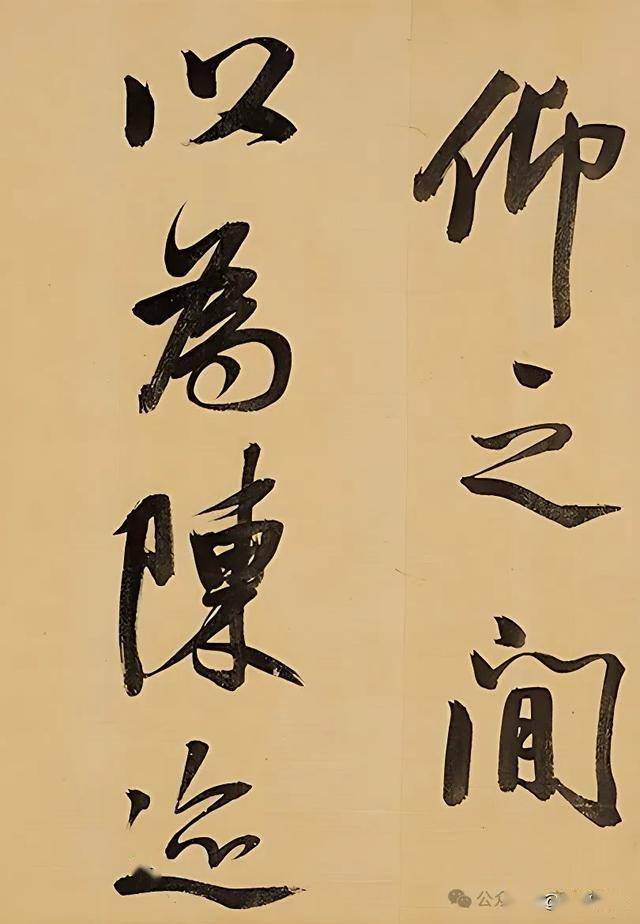 仰之間
以為陳迹
公众